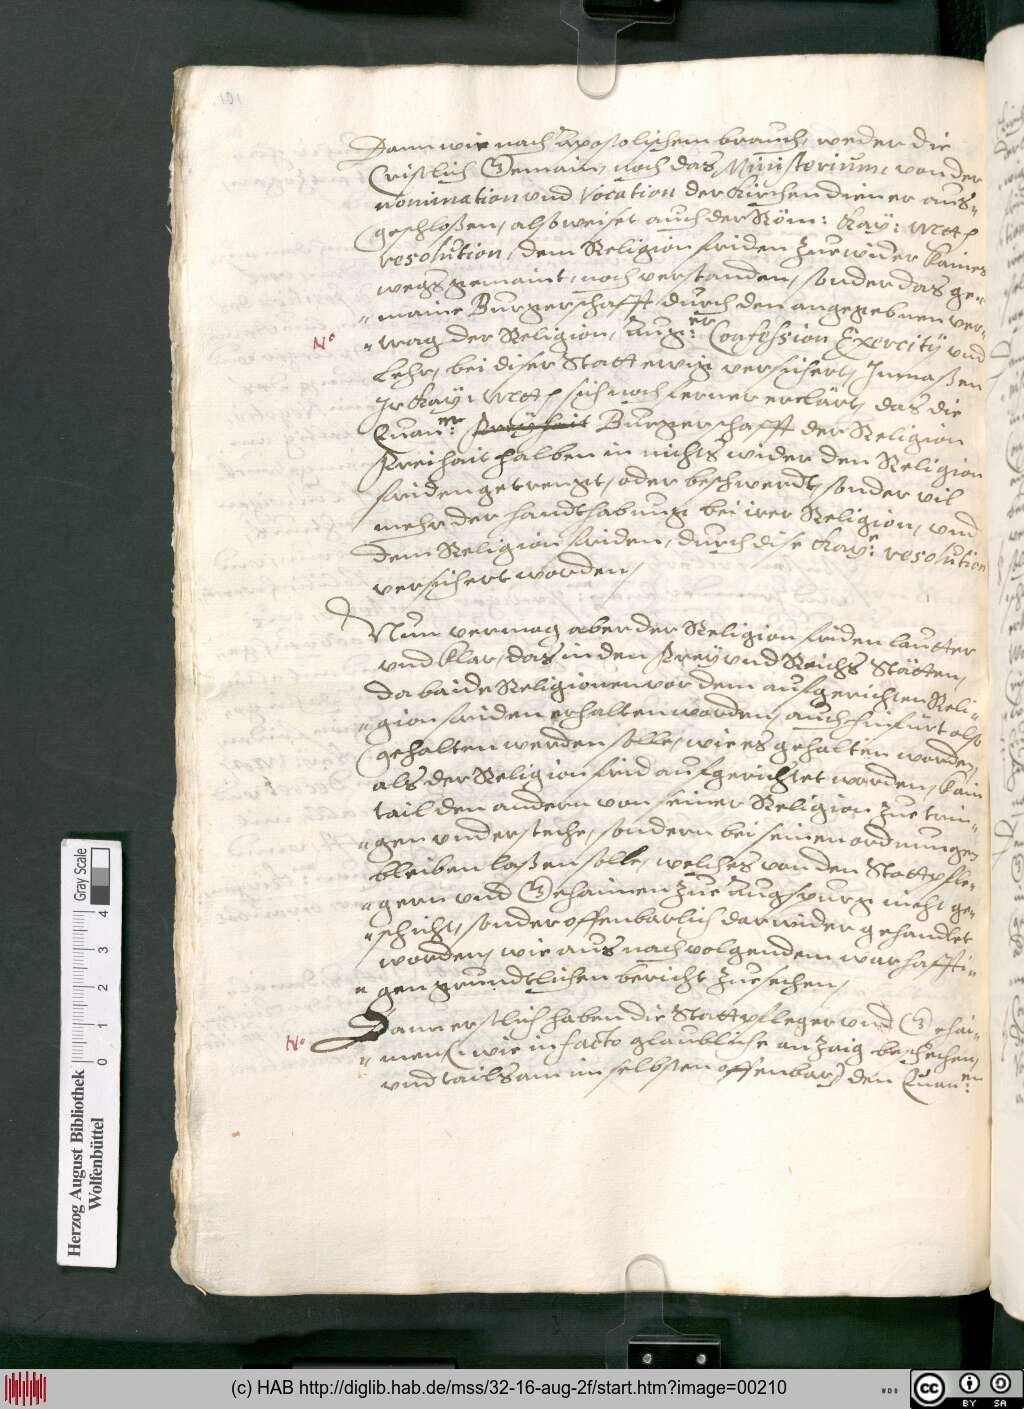 101
Dann wie nach Apostolischem brauch, weder die
Cristlich Gemain, noch das Ministerium von der
nomination vnd Vocation der Kirchendiener aus-
geschloßen, also weiset auch der Röm: Kay: Matt
resolution, dem Religion friden zuewider kaines
wegs gemaint, noch verstanden, sonder das ge-
maine Burgerschafft durch den angegebnen ver-
N° trag der Religion, Aug:er Confession Exercitÿ vnd
Lehr, bei diser Statt ewig versichert, Inmaßen
Ir Kaÿ: Matt sich noch ferner erclärt, das die
Euan:n Freÿheit Burgerschafft der Religion
Freihait halben in nichts wider den Religion
friden getrengt, oder beschwerdt, sonder vil
mehr der handthabung bei irer Religion, vnd
dem Religion friden, durch dise Kay: resolution
versichert worden,
Nun vermag aber der Religion friden lautter
vnd klar, das in den Freÿ vnd Reichs Stätten,
da baide Religionen vor dem aufgerichten Reli-
gion friden erhalten worden, auch hinfürt also
gehalten werden solle, wie es gehalten worden,
als der Religion frid aufgerichtet worden, kain
tail den andern von seiner Religion zue trin-
gen vndersteche, sondern bei seinen ordnungen
bleiben laßen solle, welches von den Stattpfle-
gern vnd Gehaimen zue Augspurg nicht ge-
schicht, sonder offenbarlich darwider gehandlet
worden, wie aus nachvolgendem warhaffti-
gen grundtlichen bericht zuesechen,
N° Dann erstlich haben die Stattpfleger vnd Gehai-
men (wie in facto glaubliche anzaig beschechen,
vnd tails am im selbsten offenbar) den Euan:en
Herzog August Bibliothek
Wolfenbüttel
0 1 2 3 4
Gray Scale
(c) HAB http://diglib.hab.de/mss/32-16-aug-2f/start.htm?image=00210
WDB
CC BY SA